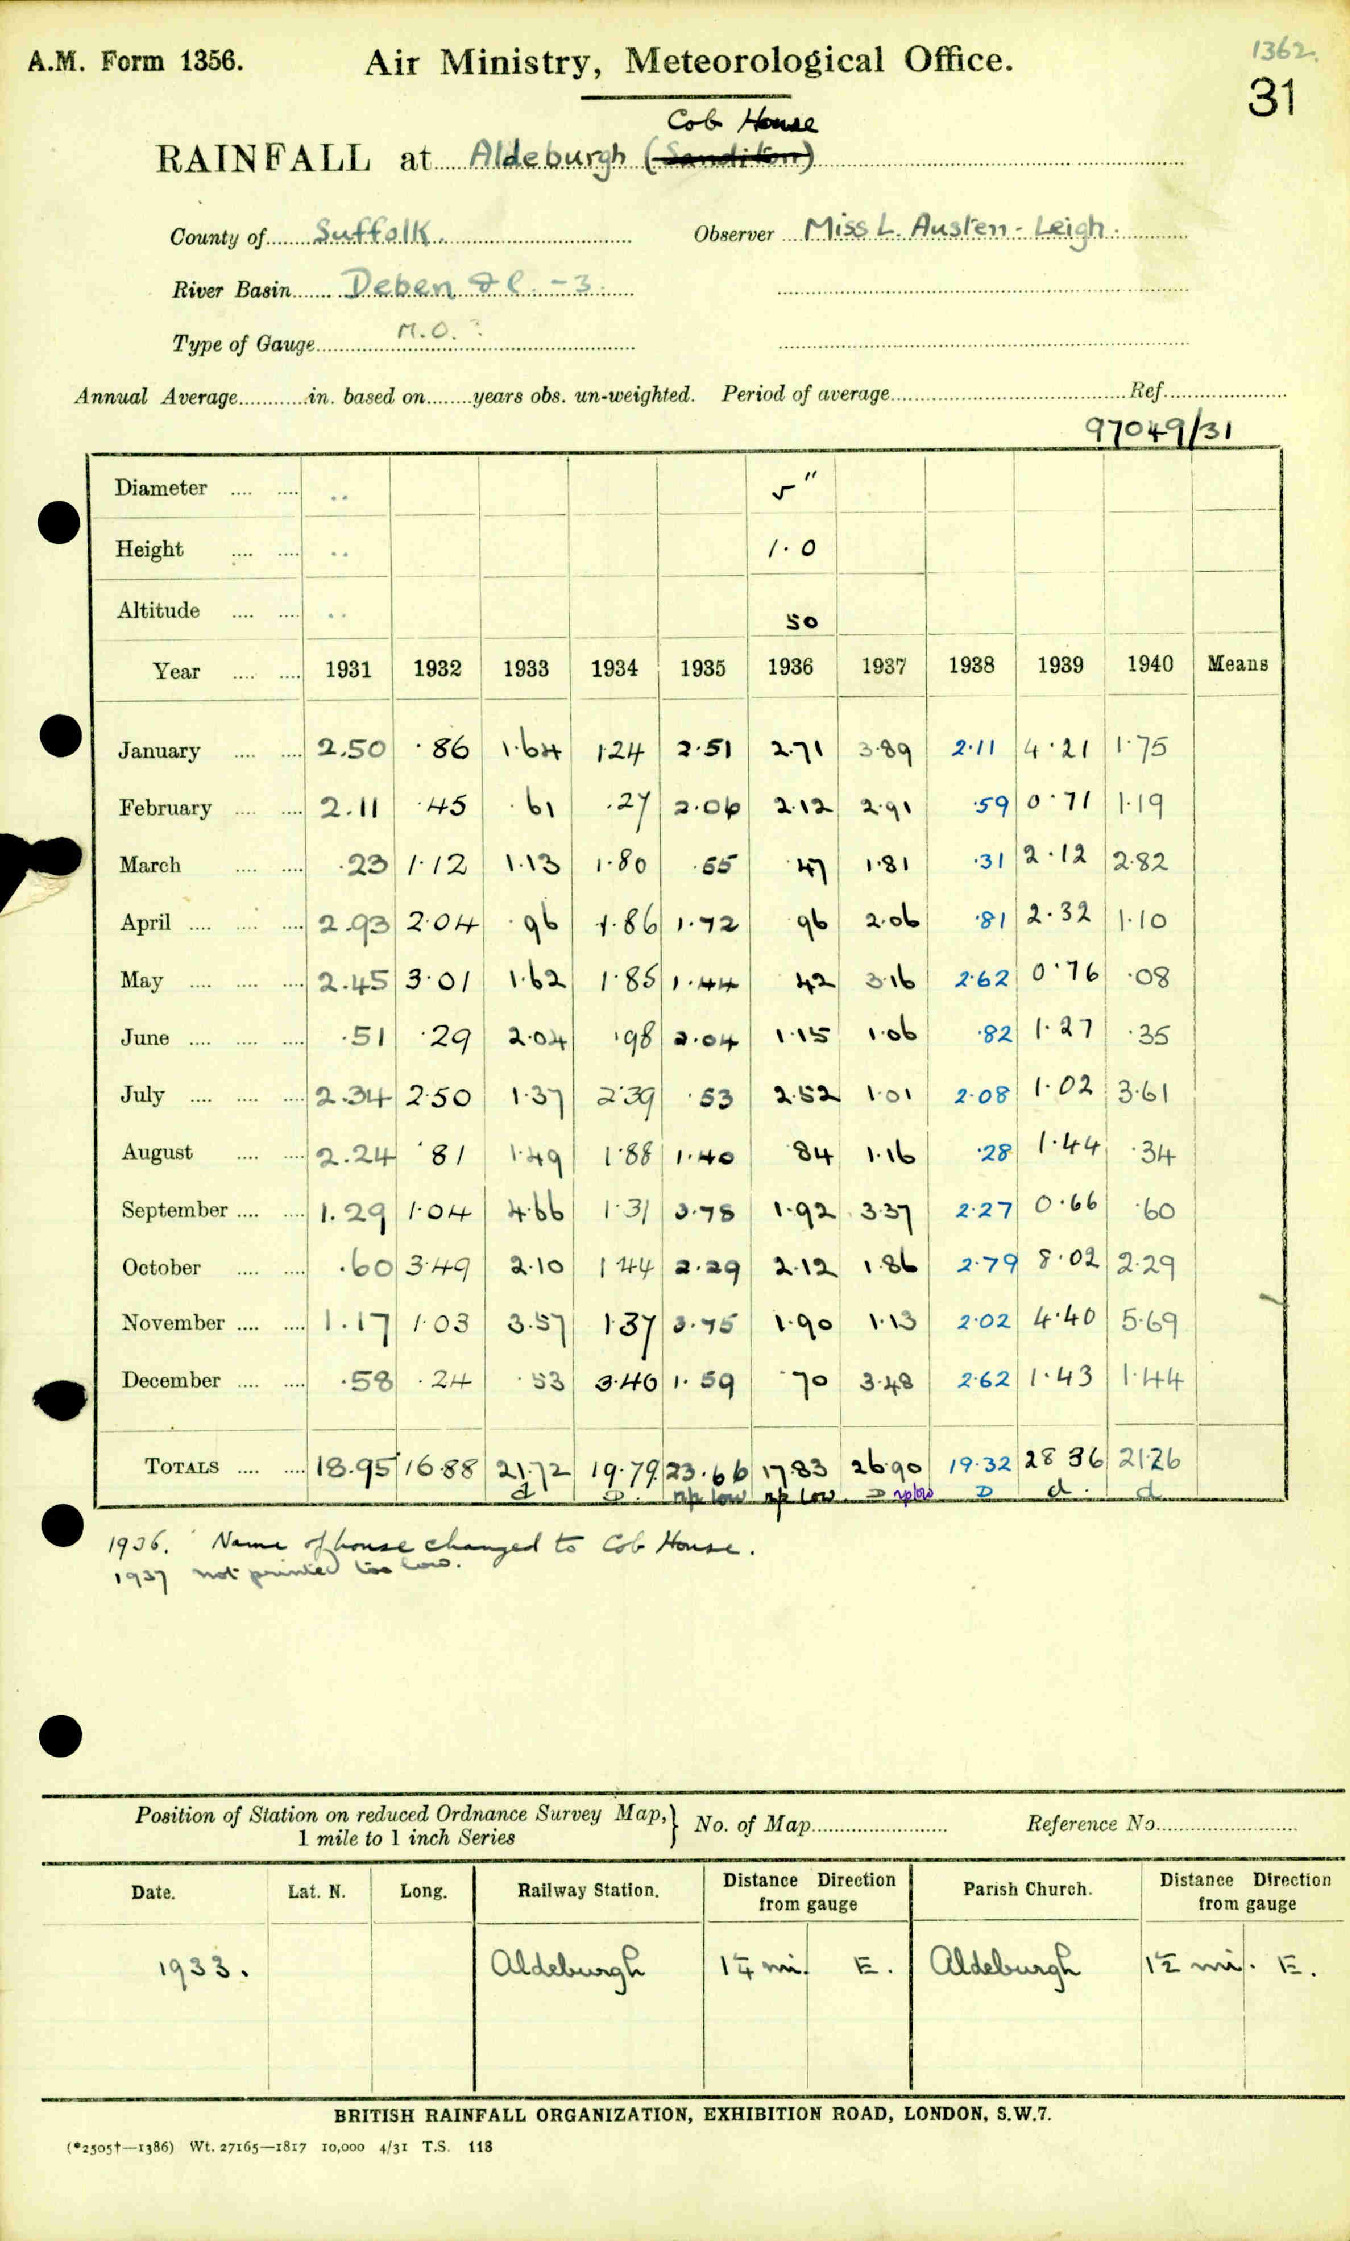 1362.
A.M. Form 1356. Air Ministry, Meteorological Office. 31
Cob House
RAINFALL at Aldeburgh (Sanditon)
County of Suffolk. Observer Miss L. Austen-Leigh.
River Basin Deben &c. -3.
Type of Gauge M.O.?
Annual Average in. based on years obs. un-weighted. Period of average Ref.
97049/31
Diameter .. 5"
Height .. 1.0
Altitude .. 50
Year 1931 1932 1933 1934 1935 1936 1937 1938 1939 1940 Means
January 2.50 .86 1.64 1.24 2.51 2.71 3.89 2.11 4.21 1.75
February 2.11 .45 .61 .27 2.06 2.12 2.91 .59 0.71 1.19
March .23 1.12 1.13 1.80 .55 .47 1.81 .31 2.12 2.82
April 2.93 2.04 .96 1.86 1.72 .96 2.06 .81 2.32 1.10
May 2.45 3.01 1.62 1.85 1.44 .42 3.16 2.62 0.76 .08
June .51 .29 2.04 .98 2.04 1.15 1.06 .82 1.27 .35
July 2.34 2.50 1.37 2.39 .53 2.52 1.01 2.08 1.02 3.61
August 2.24 .81 1.49 1.88 1.40 .84 1.16 .28 1.44 .34
September 1.29 1.04 4.66 1.31 3.78 1.92 3.37 2.27 0.66 .60
October .60 3.49 2.10 1.44 2.29 2.12 1.86 2.79 8.02 2.29
November 1.17 1.03 3.57 1.37 3.75 1.90 1.13 2.02 4.40 5.69
December .58 .24 .53 3.40 1.59 .70 3.48 2.62 1.43 1.44
TOTALS 18.95 16.88 21.72 19.79 23.66 17.83 26.90 19.32 28.36 21.26
d D. np low np low. D np low D d. d
1936. Name of house changed to Cob House.
1937 not printed too low.
Position of Station on reduced Ordnance Survey Map, } No. of Map Reference No.
1 mile to 1 inch Series
Date. Lat. N. Long. Railway Station. Distance Direction from gauge Parish Church. Distance Direction from gauge
1933. Aldeburgh 1¼ mi. E. Aldeburgh 1½ mi. E.
BRITISH RAINFALL ORGANIZATION, EXHIBITION ROAD, LONDON, S.W.7.
(*2505†—1386) Wt. 27165—1817 10,000 4/31 T.S. 118